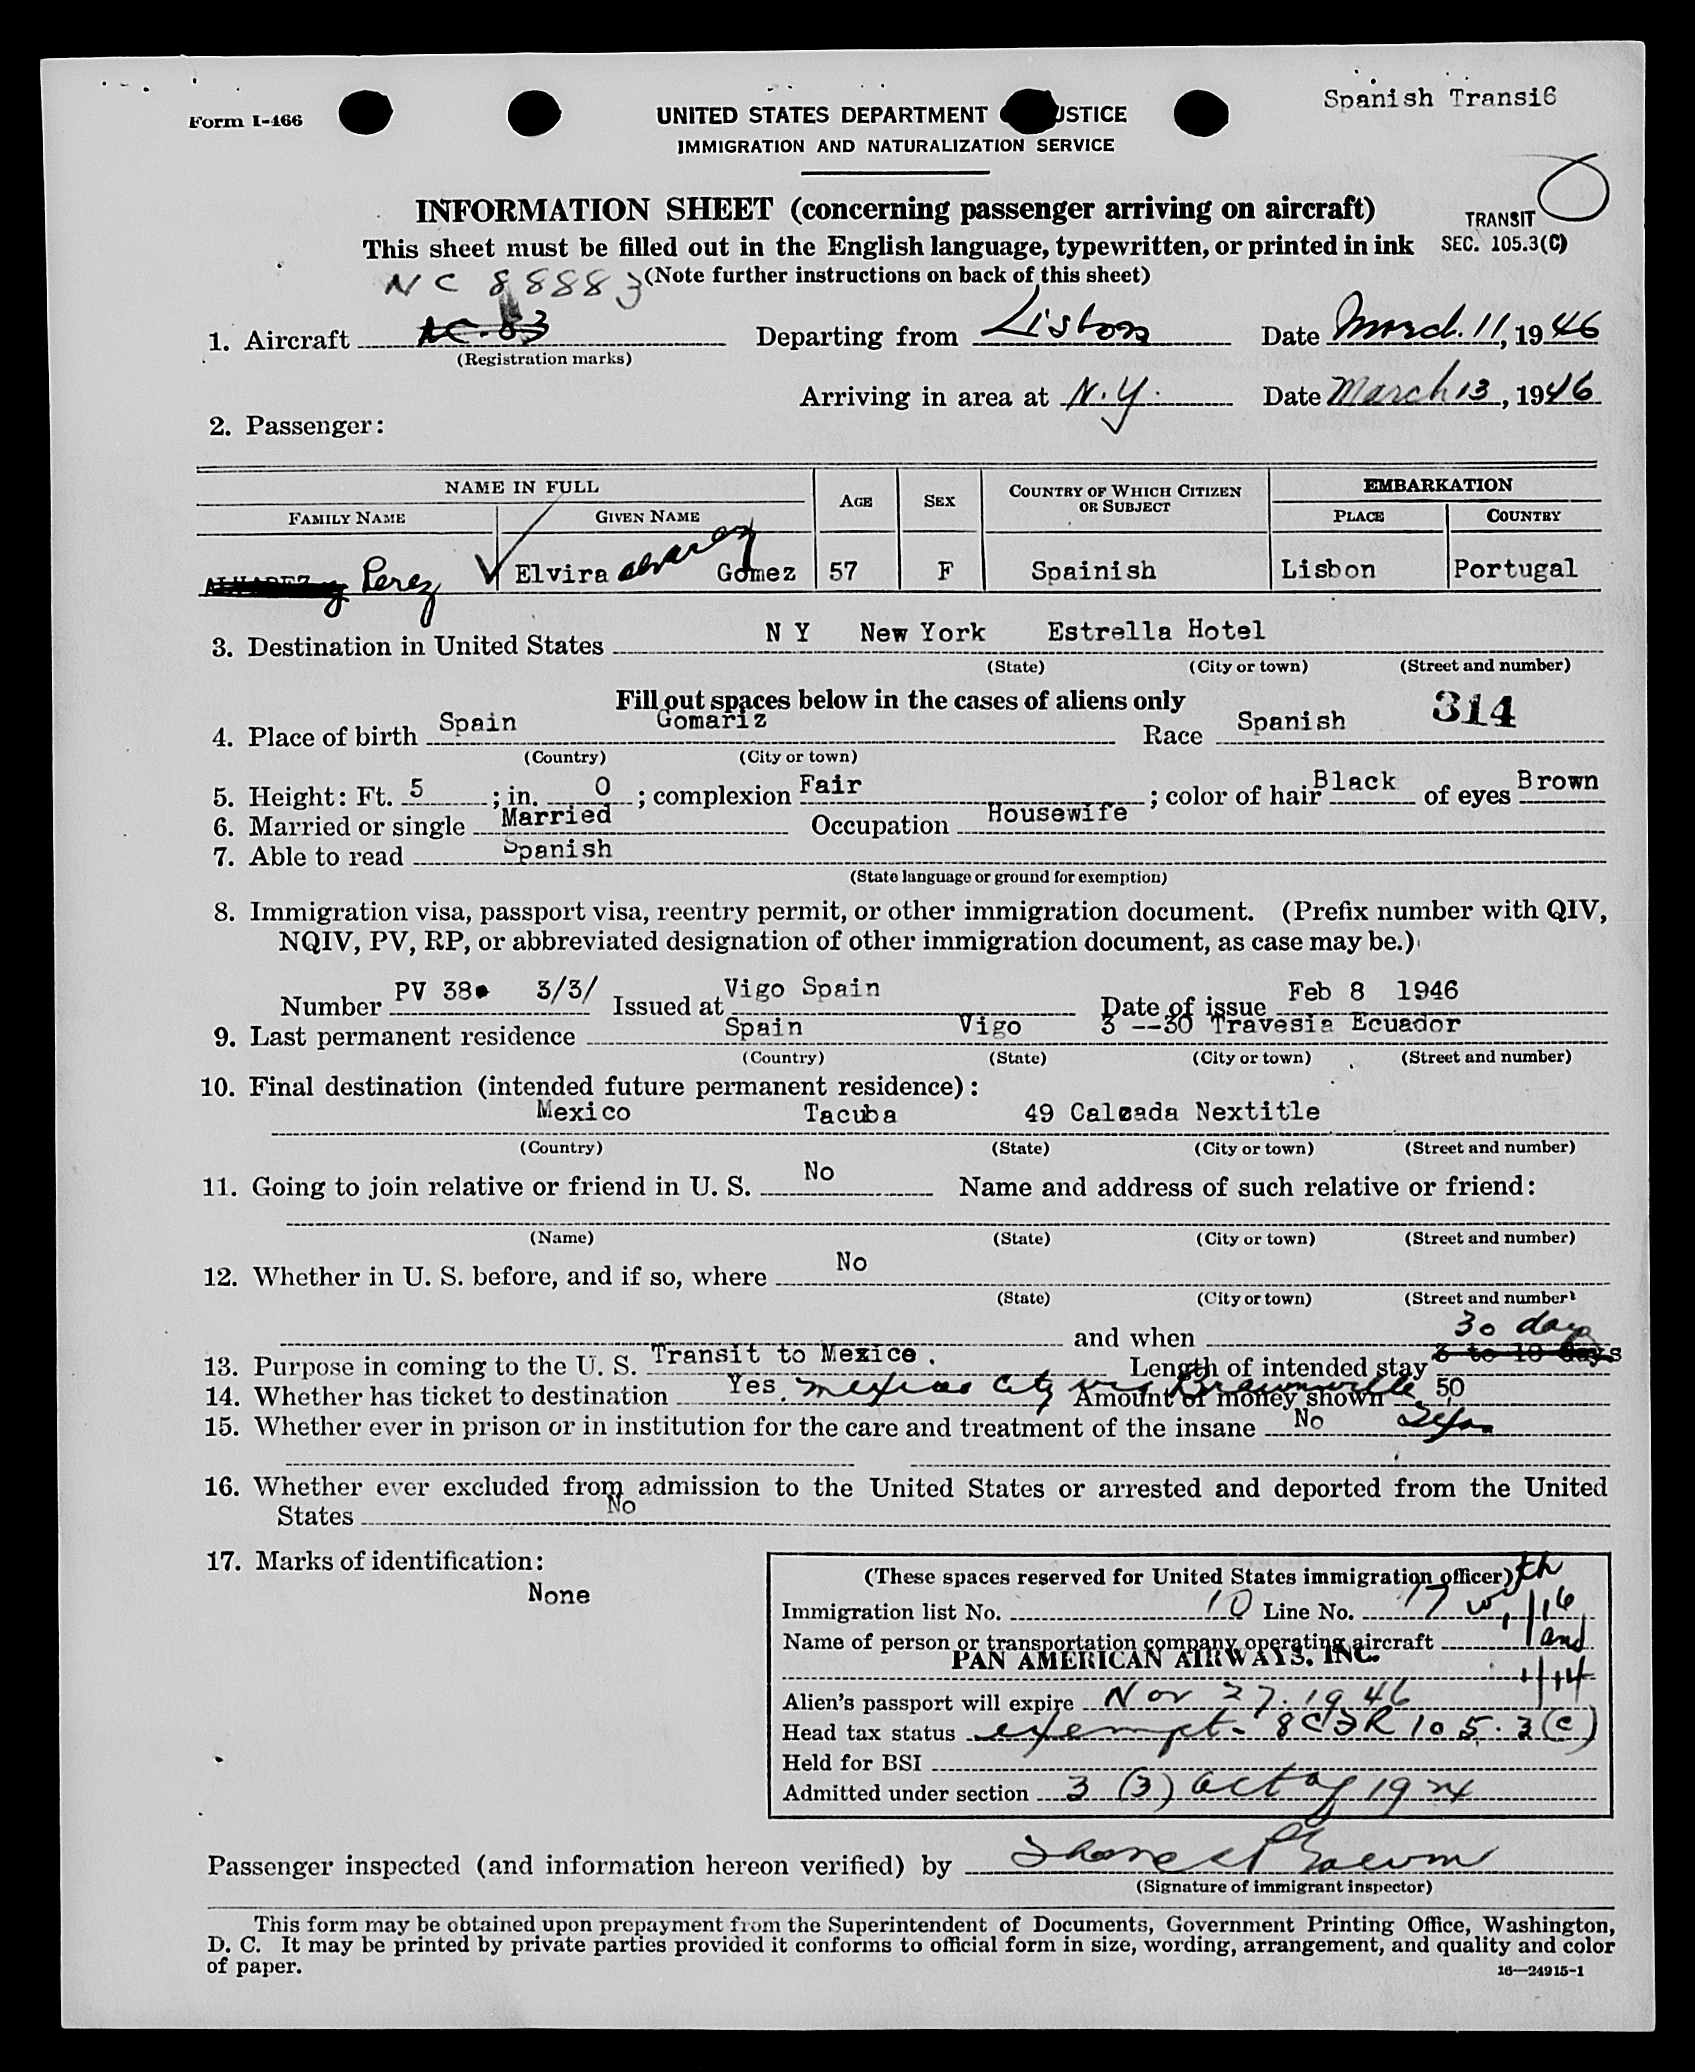 Spanish Transi6
Form I-466
UNITED STATES DEPARTMENT JUSTICE
IMMIGRATION AND NATURALIZATION SERVICE
INFORMATION SHEET (concerning passenger arriving on aircraft)
TRANSIT
SEC. 105.3(C)
This sheet must be filled out in the English language, typewritten, or printed in ink
NC 88883 (Note further instructions on back of this sheet)
1. Aircraft Departing from Lisbon Date March 11, 1946
(Registration marks)
Arriving in area at N.Y. Date March 13, 1946
2. Passenger:
NAME IN FULL AGE SEX COUNTRY OF WHICH CITIZEN OR SUBJECT EMBARKATION
FAMILY NAME GIVEN NAME PLACE COUNTRY
Perez Elvira Alvarez Gomez 57 F Spainish Lisbon Portugal
3. Destination in United States N Y New York Estrella Hotel
(State) (City or town) (Street and number)
Fill out spaces below in the cases of aliens only
314
4. Place of birth Spain Gomariz Race Spanish
(Country) (City or town)
5. Height: Ft. 5 ; in. 0 ; complexion Fair ; color of hair Black of eyes Brown
6. Married or single Married Occupation Housewife
7. Able to read Spanish
(State language or ground for exemption)
8. Immigration visa, passport visa, reentry permit, or other immigration document. (Prefix number with QIV,
NQIV, PV, RP, or abbreviated designation of other immigration document, as case may be.)
Number PV 38 3/3/ Issued at Vigo Spain Date of issue Feb 8 1946
9. Last permanent residence Spain Vigo 3 --30 Travesia Ecuador
(Country) (State) (City or town) (Street and number)
10. Final destination (intended future permanent residence):
Mexico Tacuba 49 Calzada Nextitle
(Country) (State) (City or town) (Street and number)
11. Going to join relative or friend in U. S. No Name and address of such relative or friend:
(Name) (State) (City or town) (Street and number)
12. Whether in U. S. before, and if so, where No
(State) (City or town) (Street and number)
and when
30 days
13. Purpose in coming to the U. S. Transit to Mexico. Length of intended stay 8 to 10 days
14. Whether has ticket to destination Yes. Mexico City via Brownville Texas Amount of money shown 50
15. Whether ever in prison or in institution for the care and treatment of the insane No
16. Whether ever excluded from admission to the United States or arrested and deported from the United
States No
17. Marks of identification:
None
(These spaces reserved for United States immigration officer)
Immigration list No. 10 Line No. 17 with 1/16 and 1/14
Name of person or transportation company operating aircraft
PAN AMERICAN AIRWAYS, INC.
Alien's passport will expire Nov 27. 1946
Head tax status exempt - 8CFR 105.3(c)
Held for BSI
Admitted under section 3 (3) act of 1924
Passenger inspected (and information hereon verified) by
(Signature of immigrant inspector)
This form may be obtained upon prepayment from the Superintendent of Documents, Government Printing Office, Washington,
D. C. It may be printed by private parties provided it conforms to official form in size, wording, arrangement, and quality and color
of paper.
16—24915-1